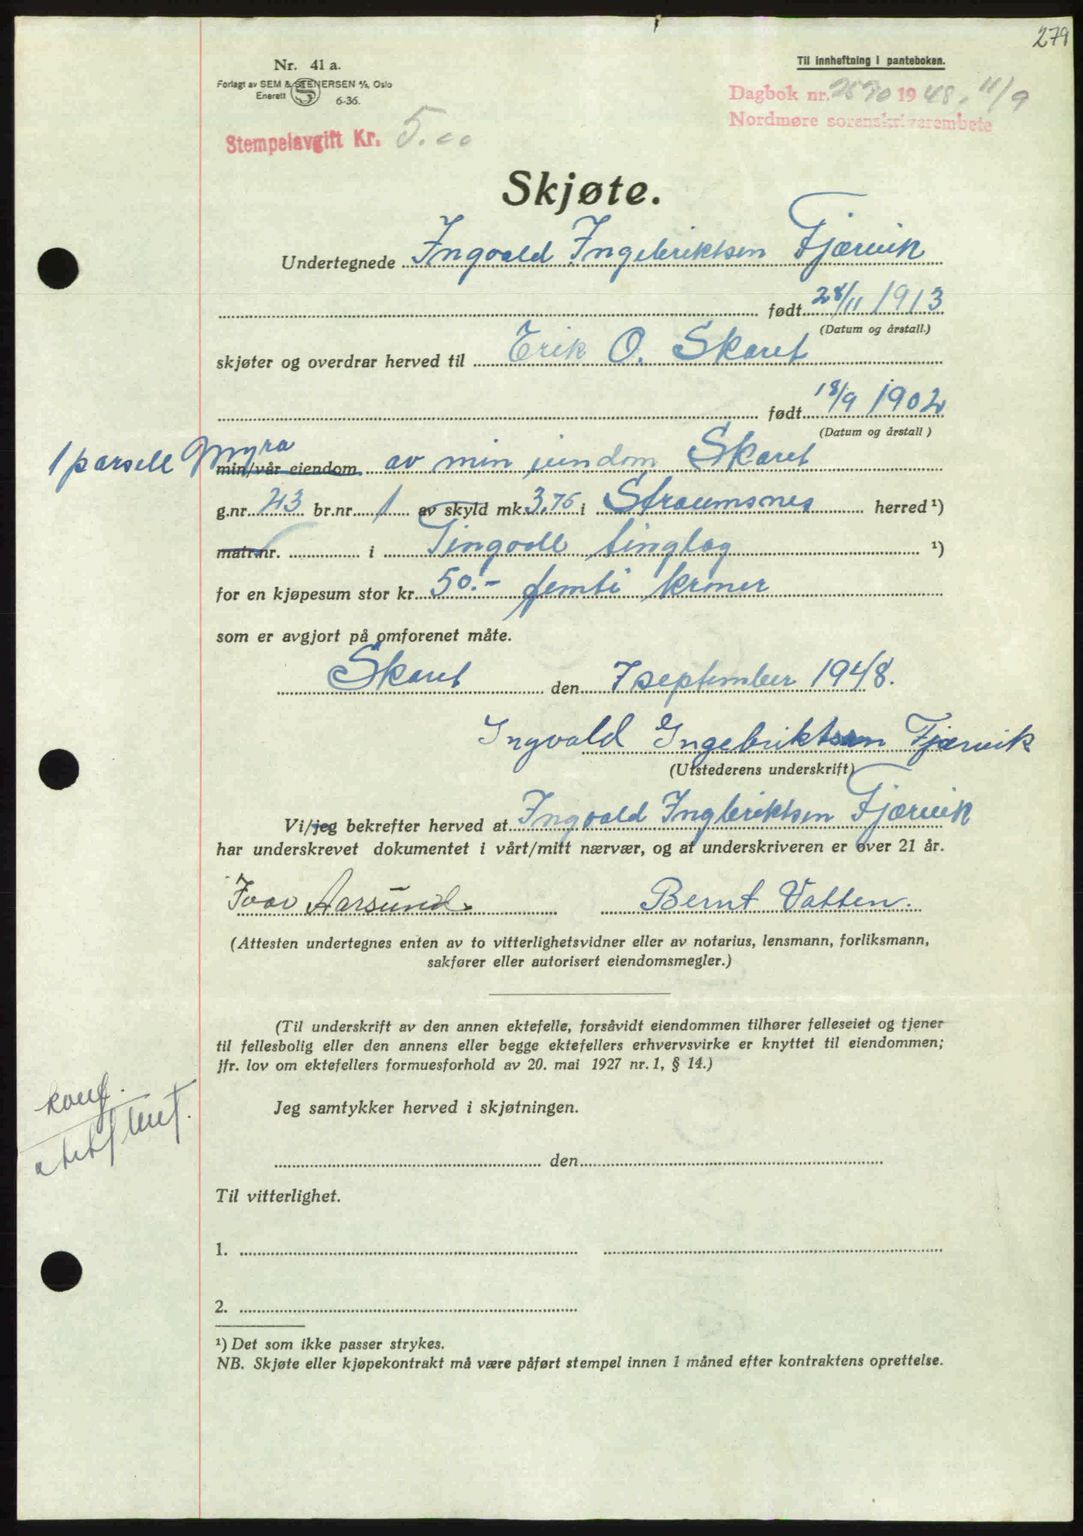 279
Nr. 41 a.
Forlagt av SEM & STENERSEN A/S, Oslo
Enerett S 6-36.
Til innheftning i panteboken.
Dagbok nr. 2590 1948. 11/9
Nordmøre sorenskriverembete
Stempelavgift Kr. 5.00
Skjøte.
Undertegnede Ingvald Ingebriktsen Fjærvik
født 28/11 1913
(Datum og årstall.)
skjøter og overdrar herved til Erik O. Skaret
født 18/9 1902
(Datum og årstall)
1 parsell Myra min/vår eiendom av min eiendom Skaret
g.nr. 43 br.nr. 1 av skyld mk. 3,75 i Straumsnes herred ¹)
matr.nr. i Tingvoll tinglag ¹)
for en kjøpesum stor kr. 50.- femti kroner
som er avgjort på omforenet måte.
Skaret den 7 september 1948.
Ingvald Ingebriktsen Fjærvik
(Utstederens underskrift)
Vi/jeg bekrefter herved at Ingvald Ingbriktsen Fjærvik
har underskrevet dokumentet i vårt/mitt nærvær, og at underskriveren er over 21 år.
Ivar Aarsund. Bernt Vatten.
(Attesten undertegnes enten av to vitterlighetsvidner eller av notarius, lensmann, forliksmann,
sakfører eller autorisert eiendomsmegler.)
(Til underskrift av den annen ektefelle, forsåvidt eiendommen tilhører felleseiet og tjener
til fellesbolig eller den annens eller begge ektefellers erhvervsvirke er knyttet til eiendommen;
jfr. lov om ektefellers formuesforhold av 20. mai 1927 nr. 1, § 14.)
Jeg samtykker herved i skjøtningen.
den
Til vitterlighet.
1.
2.
¹) Det som ikke passer strykes.
NB. Skjøte eller kjøpekontrakt må være påført stempel innen 1 måned efter kontraktens oprettelse.